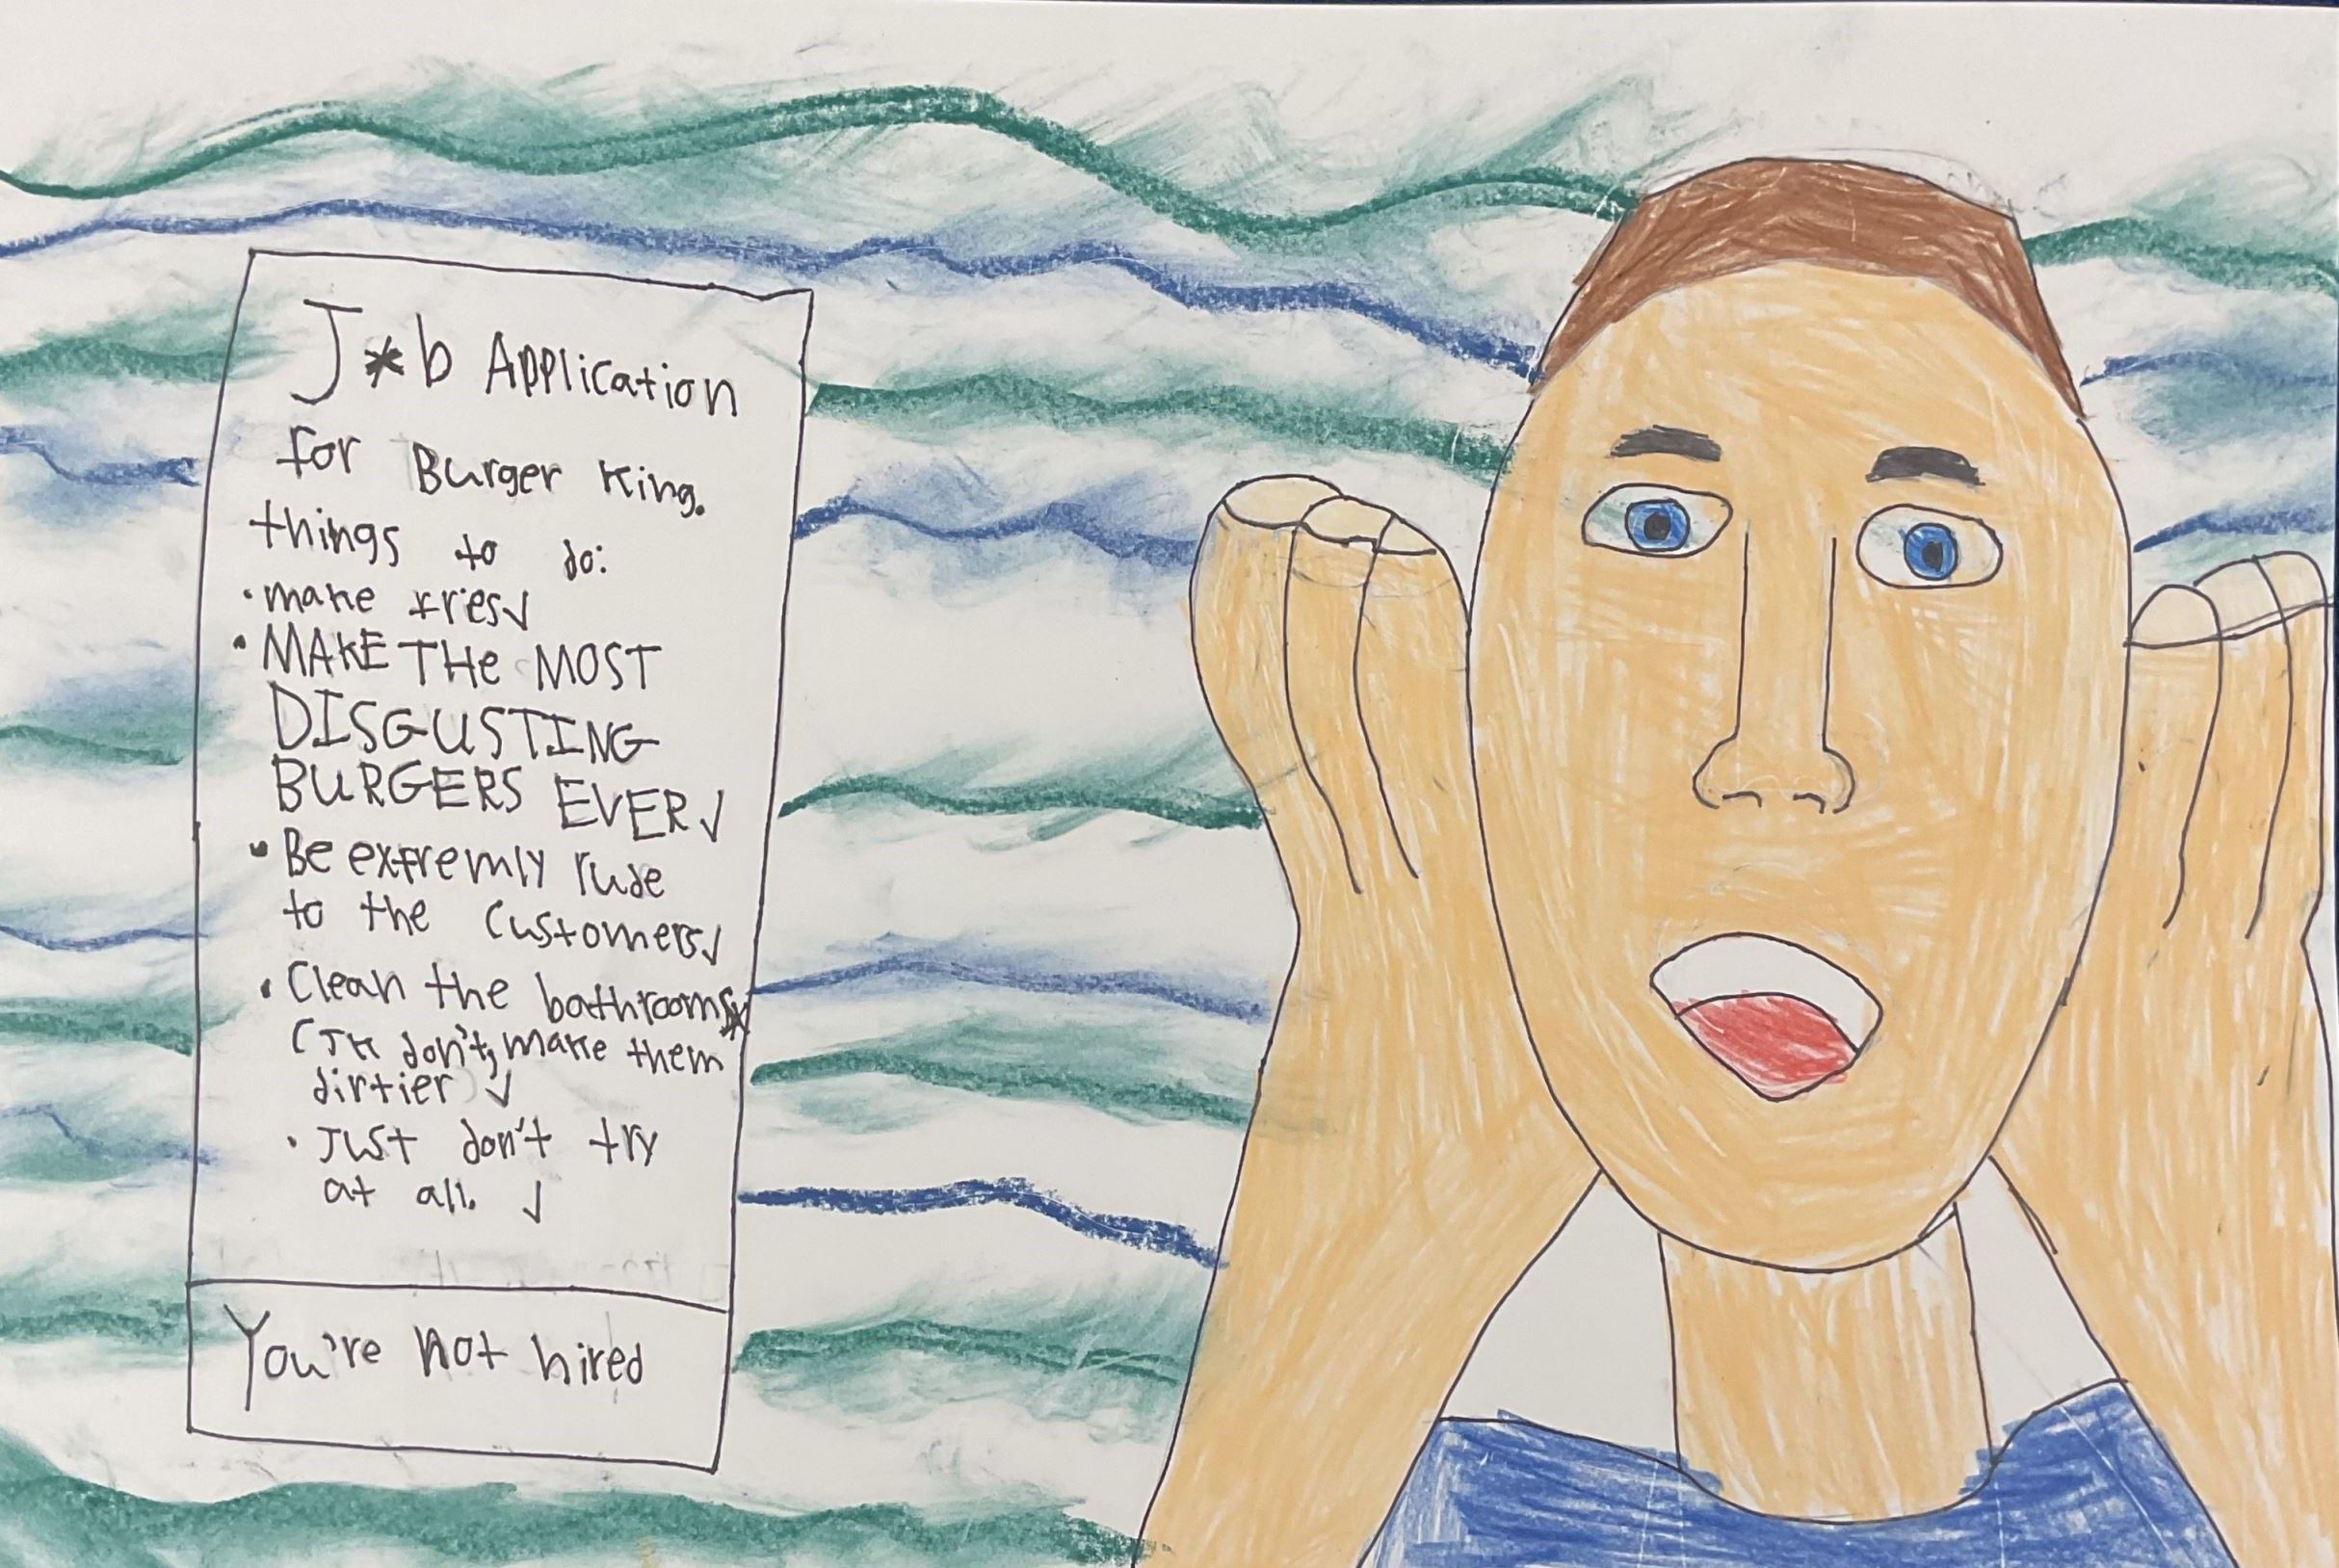 J*b Application
for Burger King.
things to do:
• make fries✓
• MAKE THe MOST
DISGUSTING
BURGERS EVER✓
• Be extremly rude
to the customers✓
• Clean the bathrooms
(JK don't, make them
dirtier ✓
• Just don't try
at all. ✓
You're not hired